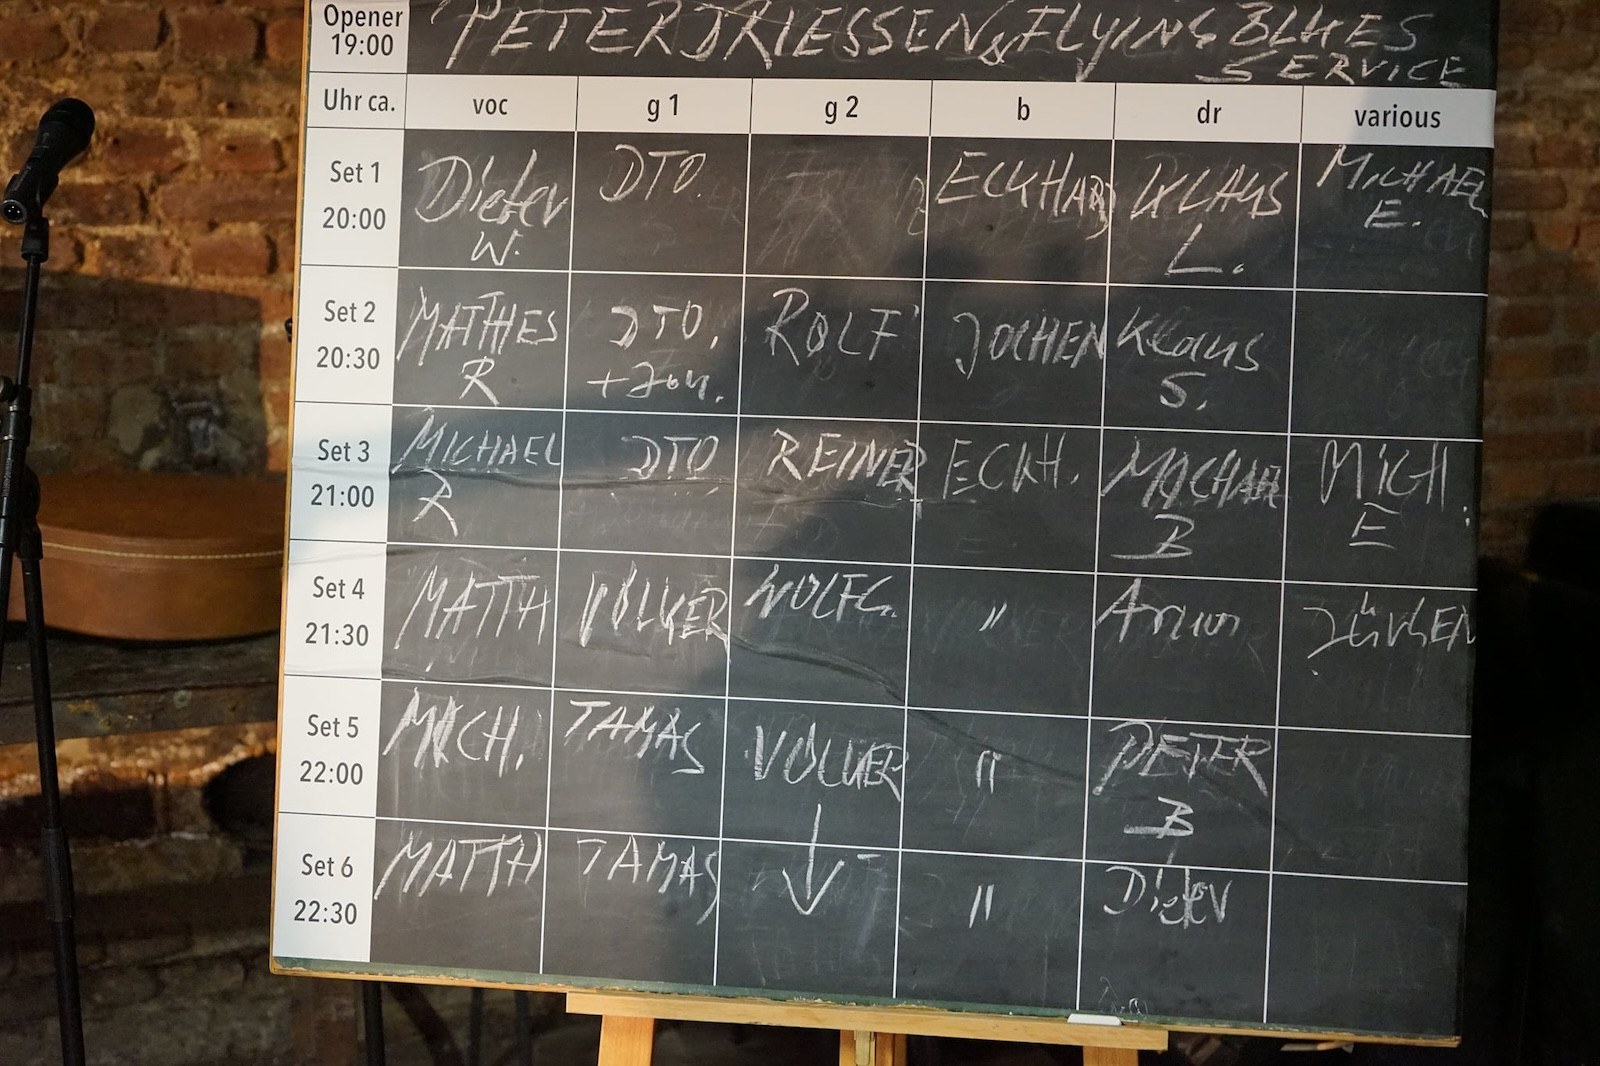 Opener 'PETER DRIESSEN & FLYING BLUES
19:00 SERVICE
Uhr ca. voc g 1 g 2 b dr various
Set 1 Dieter DTO. ECKHARD KLAUS MICHAEL
20:00 W. L. E.
Set 2 MATTHES DTO. ROLF JOCHEN Klaus
20:30 R + Jon. S.
Set 3 MICHAEL DTO REINER ECKH. MICHAEL MICH.
21:00 R B E
Set 4 MATTH VOLKER WOLFG. " JÜRGEN
21:30
Set 5 MICH. TAMAS VOLKER " PETER
22:00 B
Set 6 MATTH TAMAS ↓ " Dieter
22:30